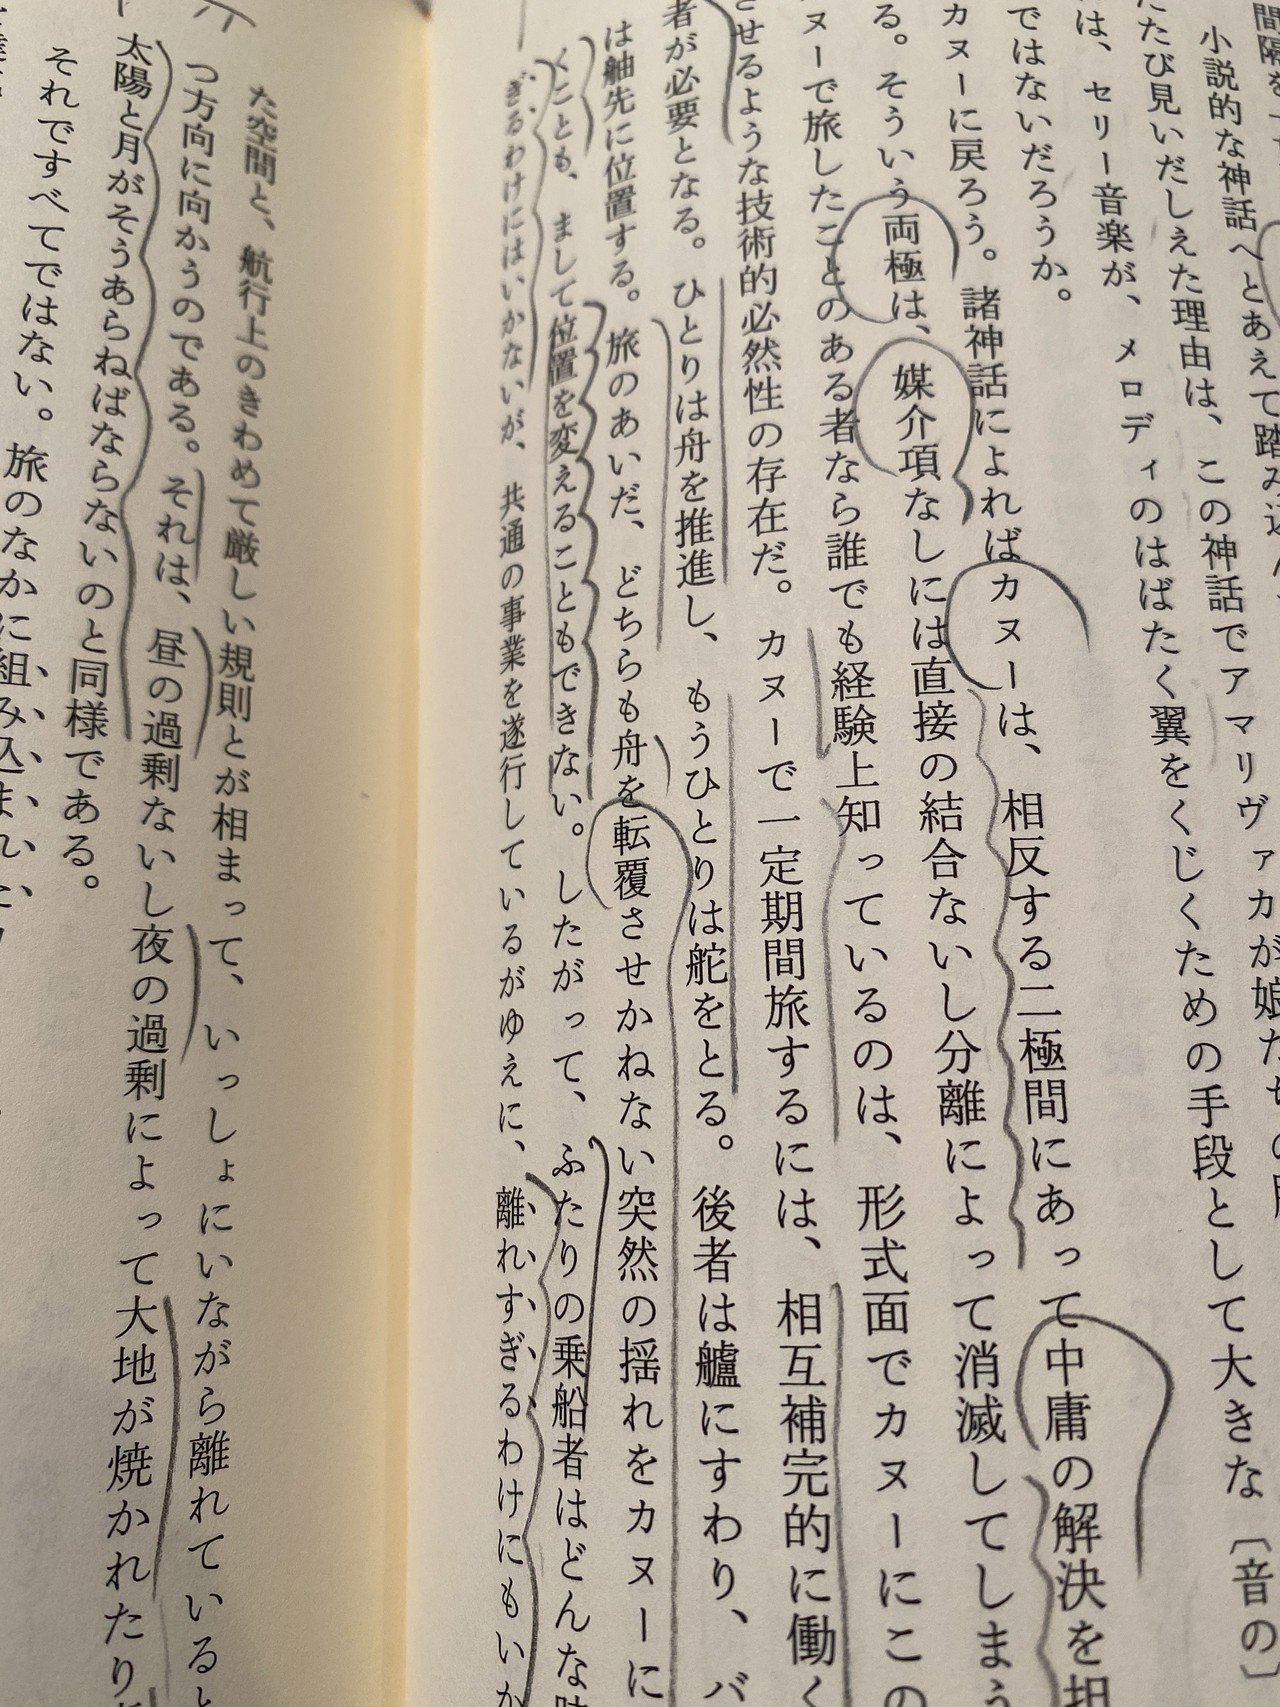 小説的な神話へとあえて踏み込
たび見いだしえた理由は、この神話でアマリヴァカが娘た
は、セリー音楽が、メロディのはばたく翼をくじくための手段として大きな〔音の〕
ではないだろうか。
カヌーに戻ろう。諸神話によればカヌーは、相反する二極間にあって中庸の解決を担
る。そういう両極は、媒介項なしには直接の結合ないし分離によって消滅してしまう
ヌーで旅したことのある者なら誰でも経験上知っているのは、形式面でカヌーにこの
させるような技術的必然性の存在だ。カヌーで一定期間旅するには、相互補完的に働く
者が必要となる。ひとりは舟を推進し、もうひとりは舵をとる。後者は艫にすわり、バ
は舳先に位置する。旅のあいだ、どちらも舟を転覆させかねない突然の揺れをカヌーに
くことも、まして位置を変えることもできない。したがって、ふたりの乗船者はどんな時
ぎるわけにはいかないが、共通の事業を遂行しているがゆえに、離れすぎるわけにもいか
た空間と、航行上のきわめて厳しい規則とが相まって、いっしょにいながら離れていると
つ方向に向かうのである。それは、昼の過剰ないし夜の過剰によって大地が焼かれたり
太陽と月がそうあらねばならないのと同様である。
それですべてではない。旅のなかに組み込まれた